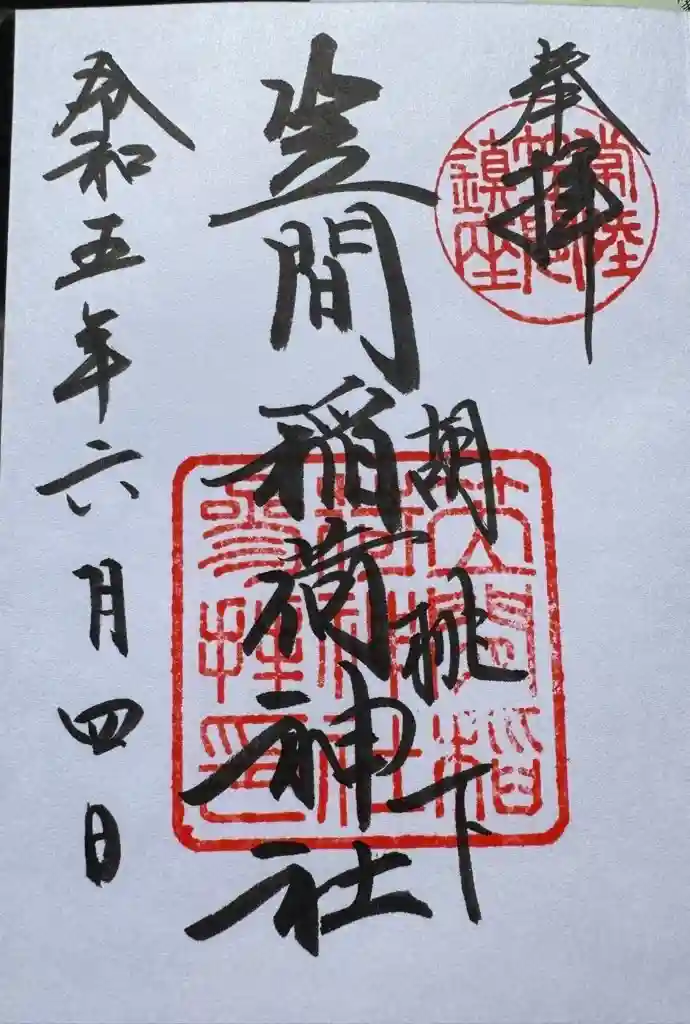 奉拝
常陸
笠間
鎮座
胡桃下
笠間稲荷神社
笠間稲
荷神社
参拝印
令和五年六月四日